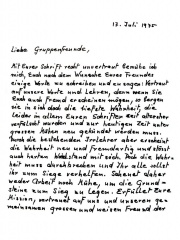 13. Juli 1975
Liebe Gruppenfreunde,
Mit Eurer Schrift recht unvertraut bemühe ich
mich, Euch nach dem Wunsche Eures Freundes
einige Worte zu schreiben und zu sagen: Vertraut
auf unsere Worte und Lehren, denn wenn sie
Euch auch fremd erscheinen mögen, so bergen
sie in sich doch die tiefste Wahrheit, die
leider in allen Euren Schriften seit altersher
verfälscht wurden und zur heutigen Zeit unter
grossen Mühen neu gekündet werden muss.
Durch die bestehenden Irrlehren aber erscheint
die Wahrheit neu und fremdartig und stösst
auch harten Widerstand mit sich. Doch die Wahr-
heit muss durchdringen und Ihr alle sollt
ihr zum Siege verhelfen. Scheuet daher
weder Arbeit noch Mühe, um die Grund-
steine zum Sieg zu legen. Erfüllet Eure
Mission, vertraut auf uns und unseren ge-
meinsamen grossen und weisen Freund der